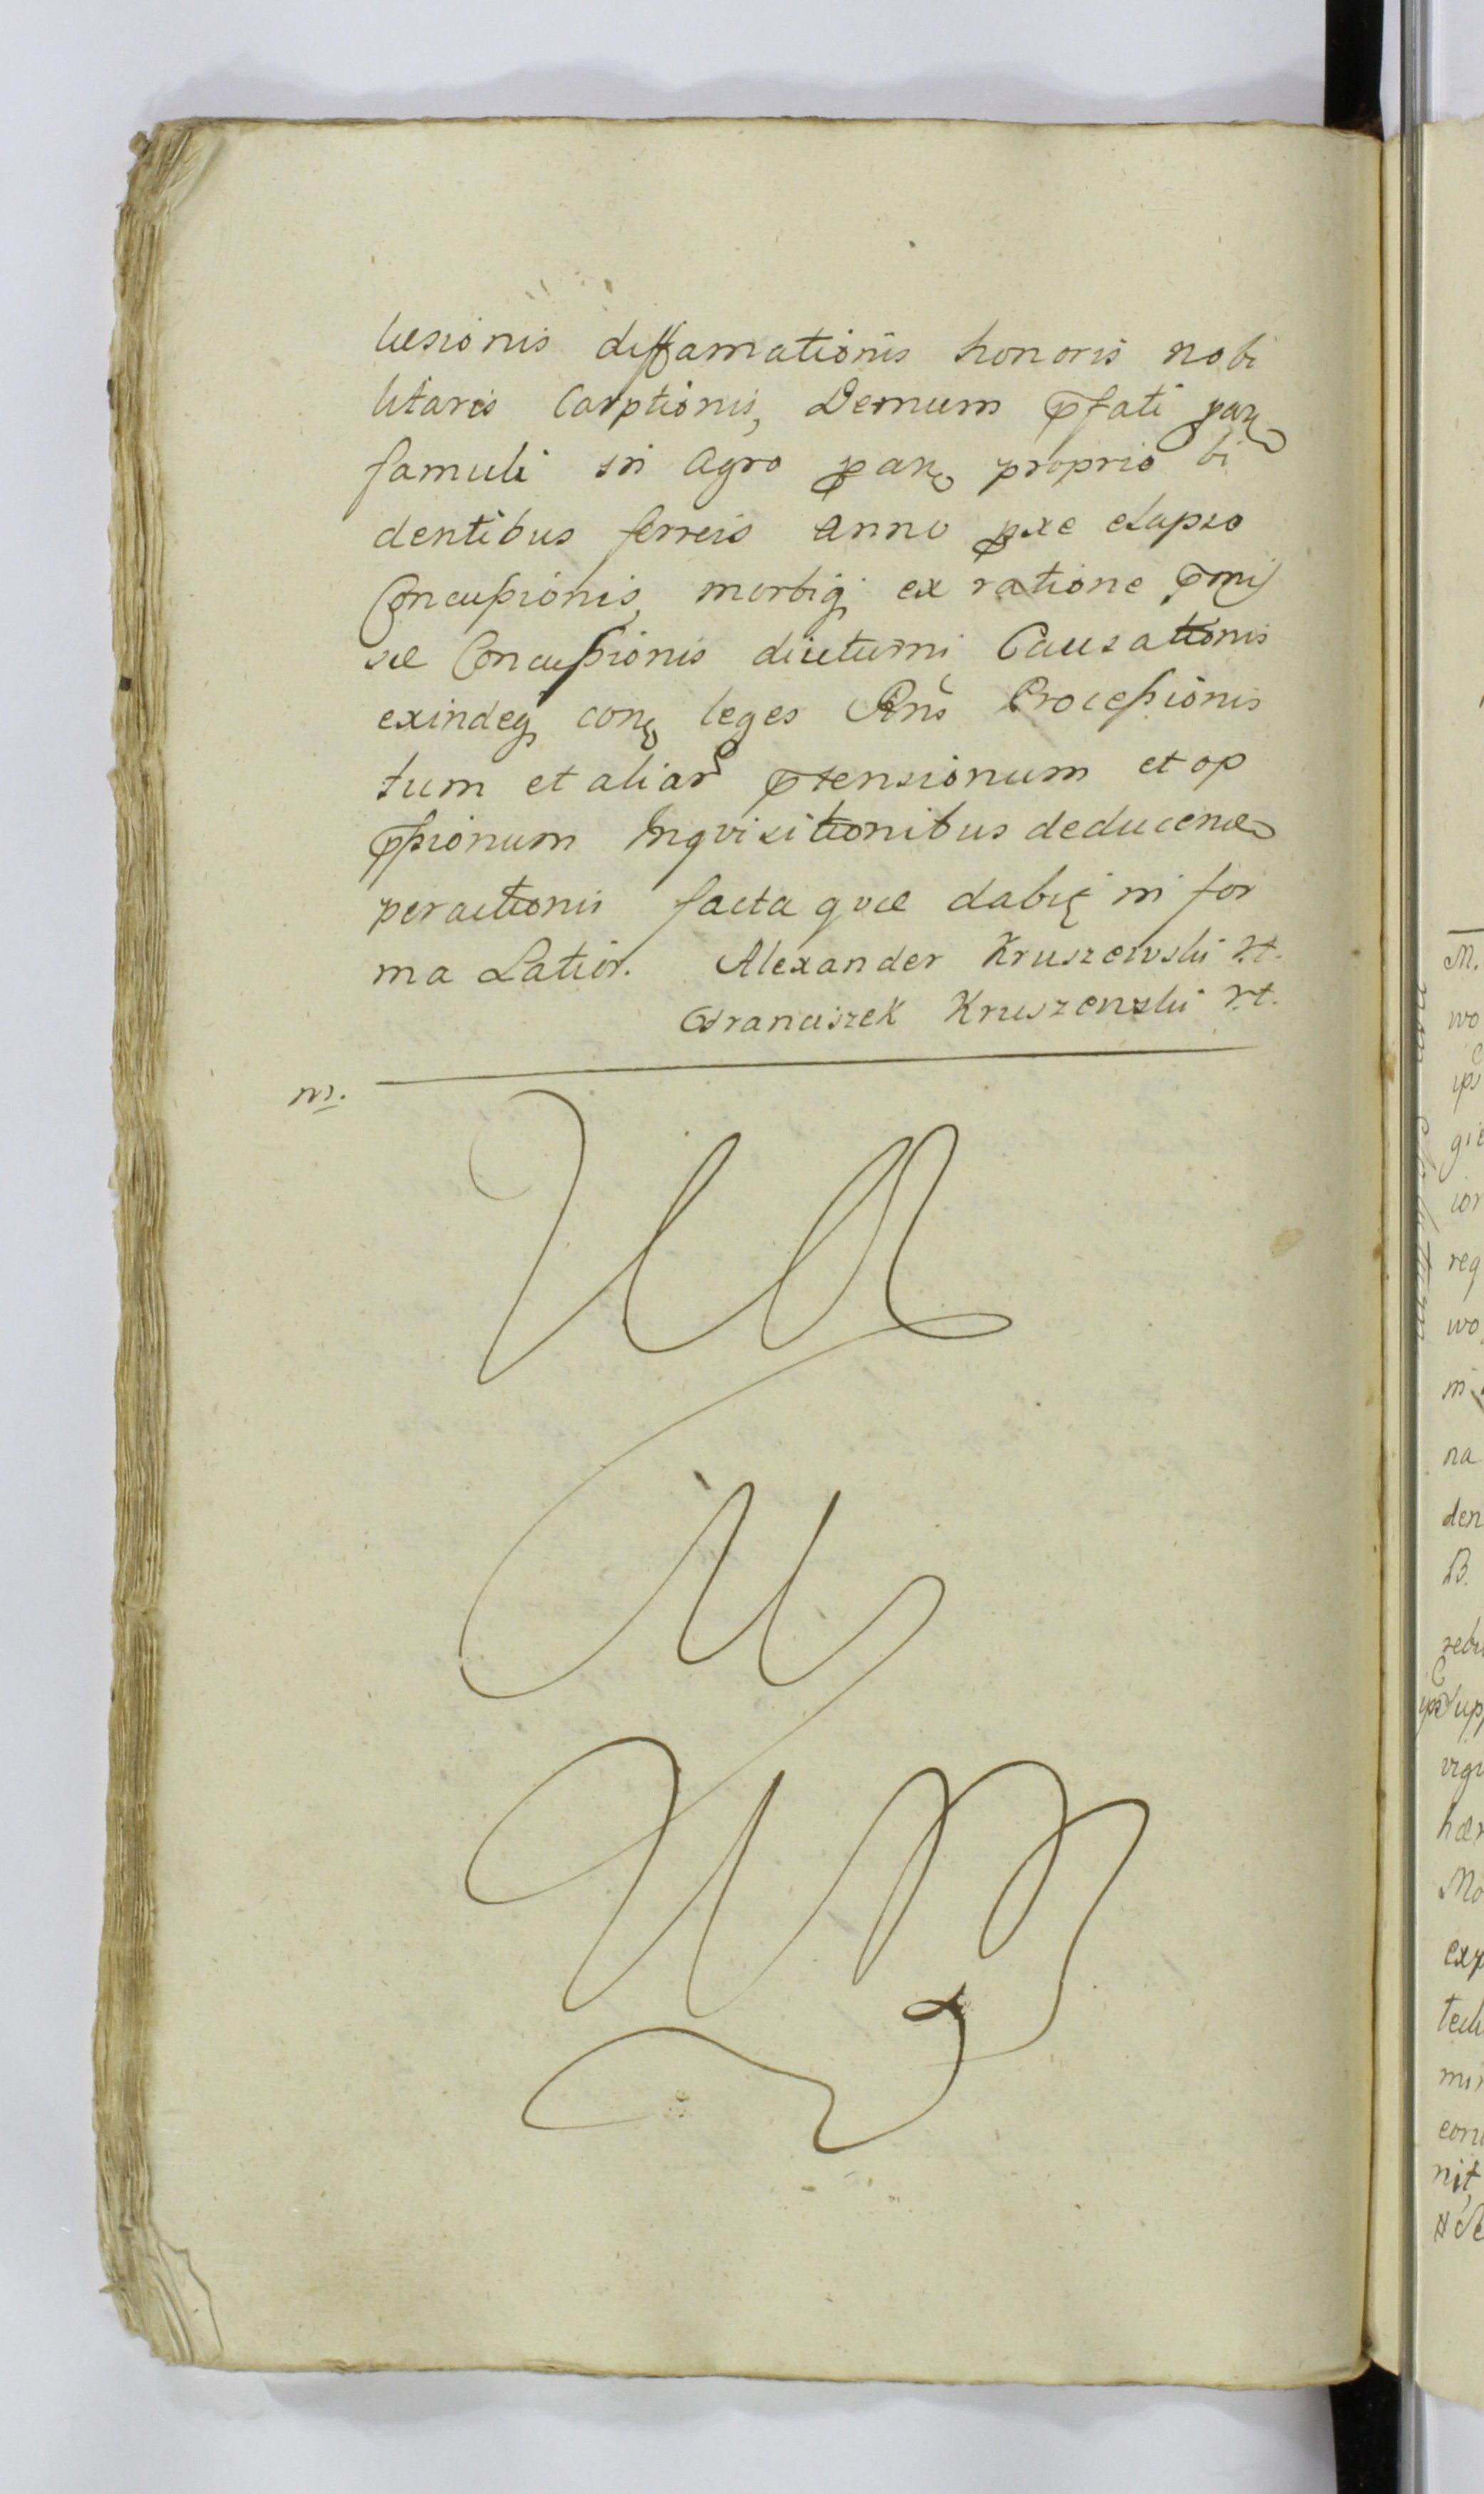 læsionis diffamationis honoris nobi
litaris Carptionis, Demum pfati
famuli in Agro proprio bi
dentibus ferreis anno pxe elapso
Concussionis, morbiq ex ratione pmis
sæ Concussionis diuturni Causationis
exindeq leges Rns Processionis
tum et aliar ptensionum et op
pssionum Inqvisitionibus deducend
peractionis facta qvæ dabit in for
ma Latior. Alexander Kruszewski
Franciszek Kruszewski
m.
M.
wo
gie
ior
req
wo
in
na
den
B.
hær
Mo
exp
nit